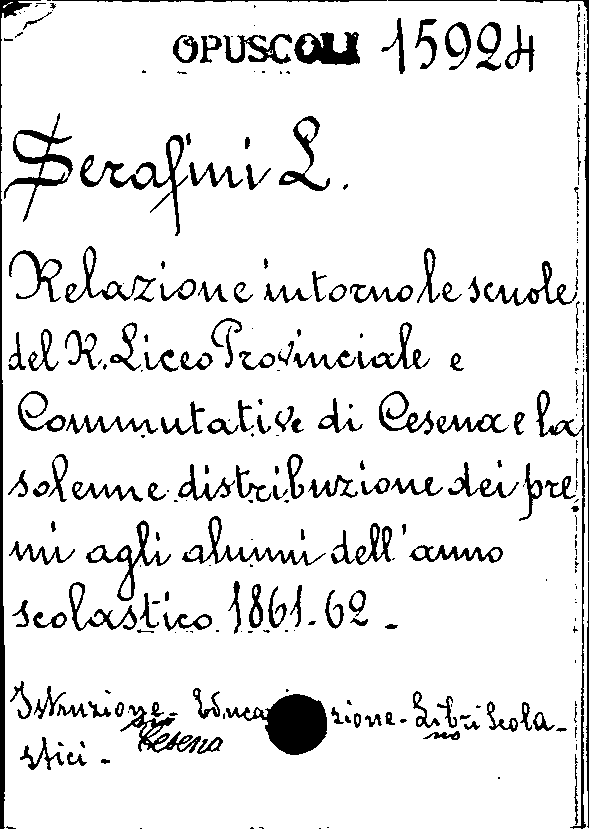 OPUSCOLI 15924
Serafini L.
Relazione intorno le scuole
del R. Liceo Provinciale e
Commutative di Cesena e la
solenne distribuzione dei pre
mi agli alunni dell'anno
scolastico 1861-62 -
Istruzione - Educazione - Libri Scola-
Cesena
stici -